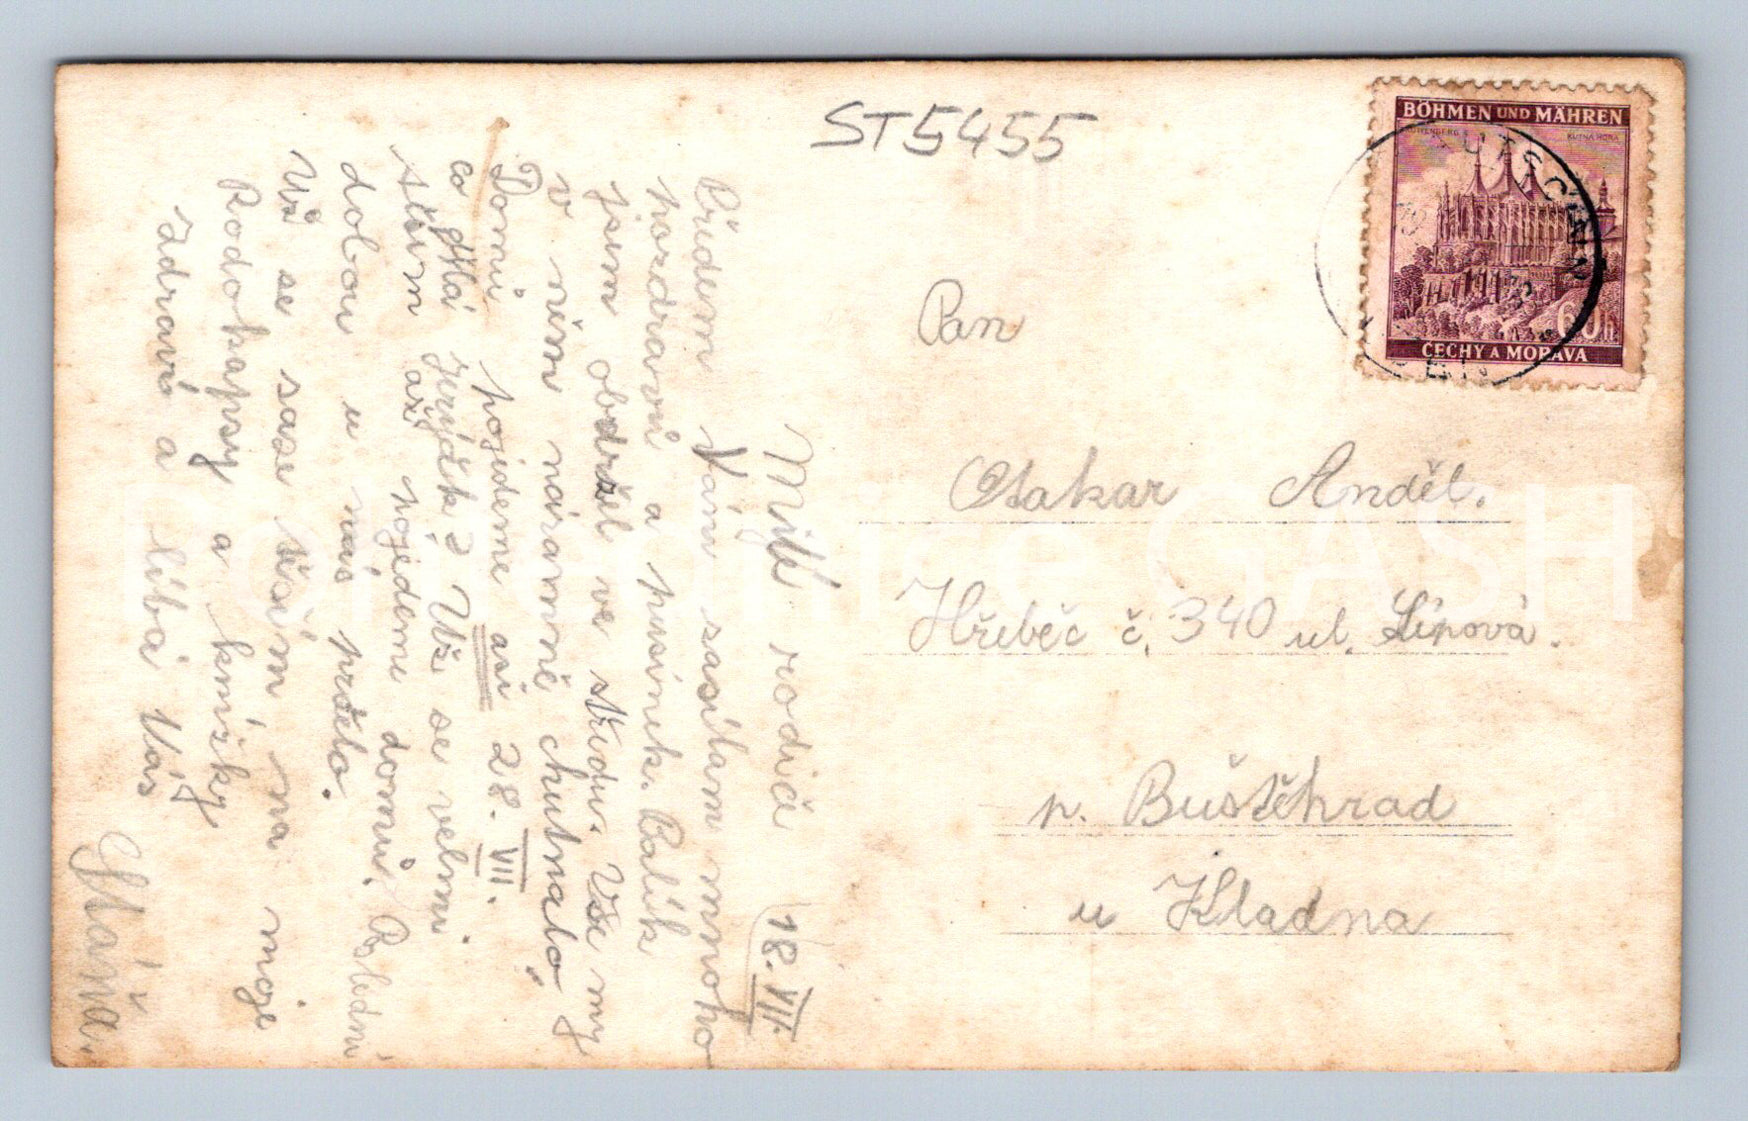 ST5455
BÖHMEN UND MÄHREN
KUTTENBERG
KUTNÁ HORA
60h
ČECHY A MORAVA
Milí rodiče 18. VII.
Předem Vám zasílám mnoho
pozdravů a pusinek. Balík
jsem obdržel ve středu. Vše my
v něm náramně chutnalo.
Domů pojedeme asi 28. VII.
co dělá Ježíšek? Už se velmi
těším až pojedeme domů. Polední
dobou u nás pršelo.
Už se zase těším na moje
Rodokapsy a knížky
Zdraví a líbá Vás
Máňa.
Pan
Otakar Anděl.
Hřebeč č. 340 ul. Lípová.
p. Buštěhrad
u Kladna